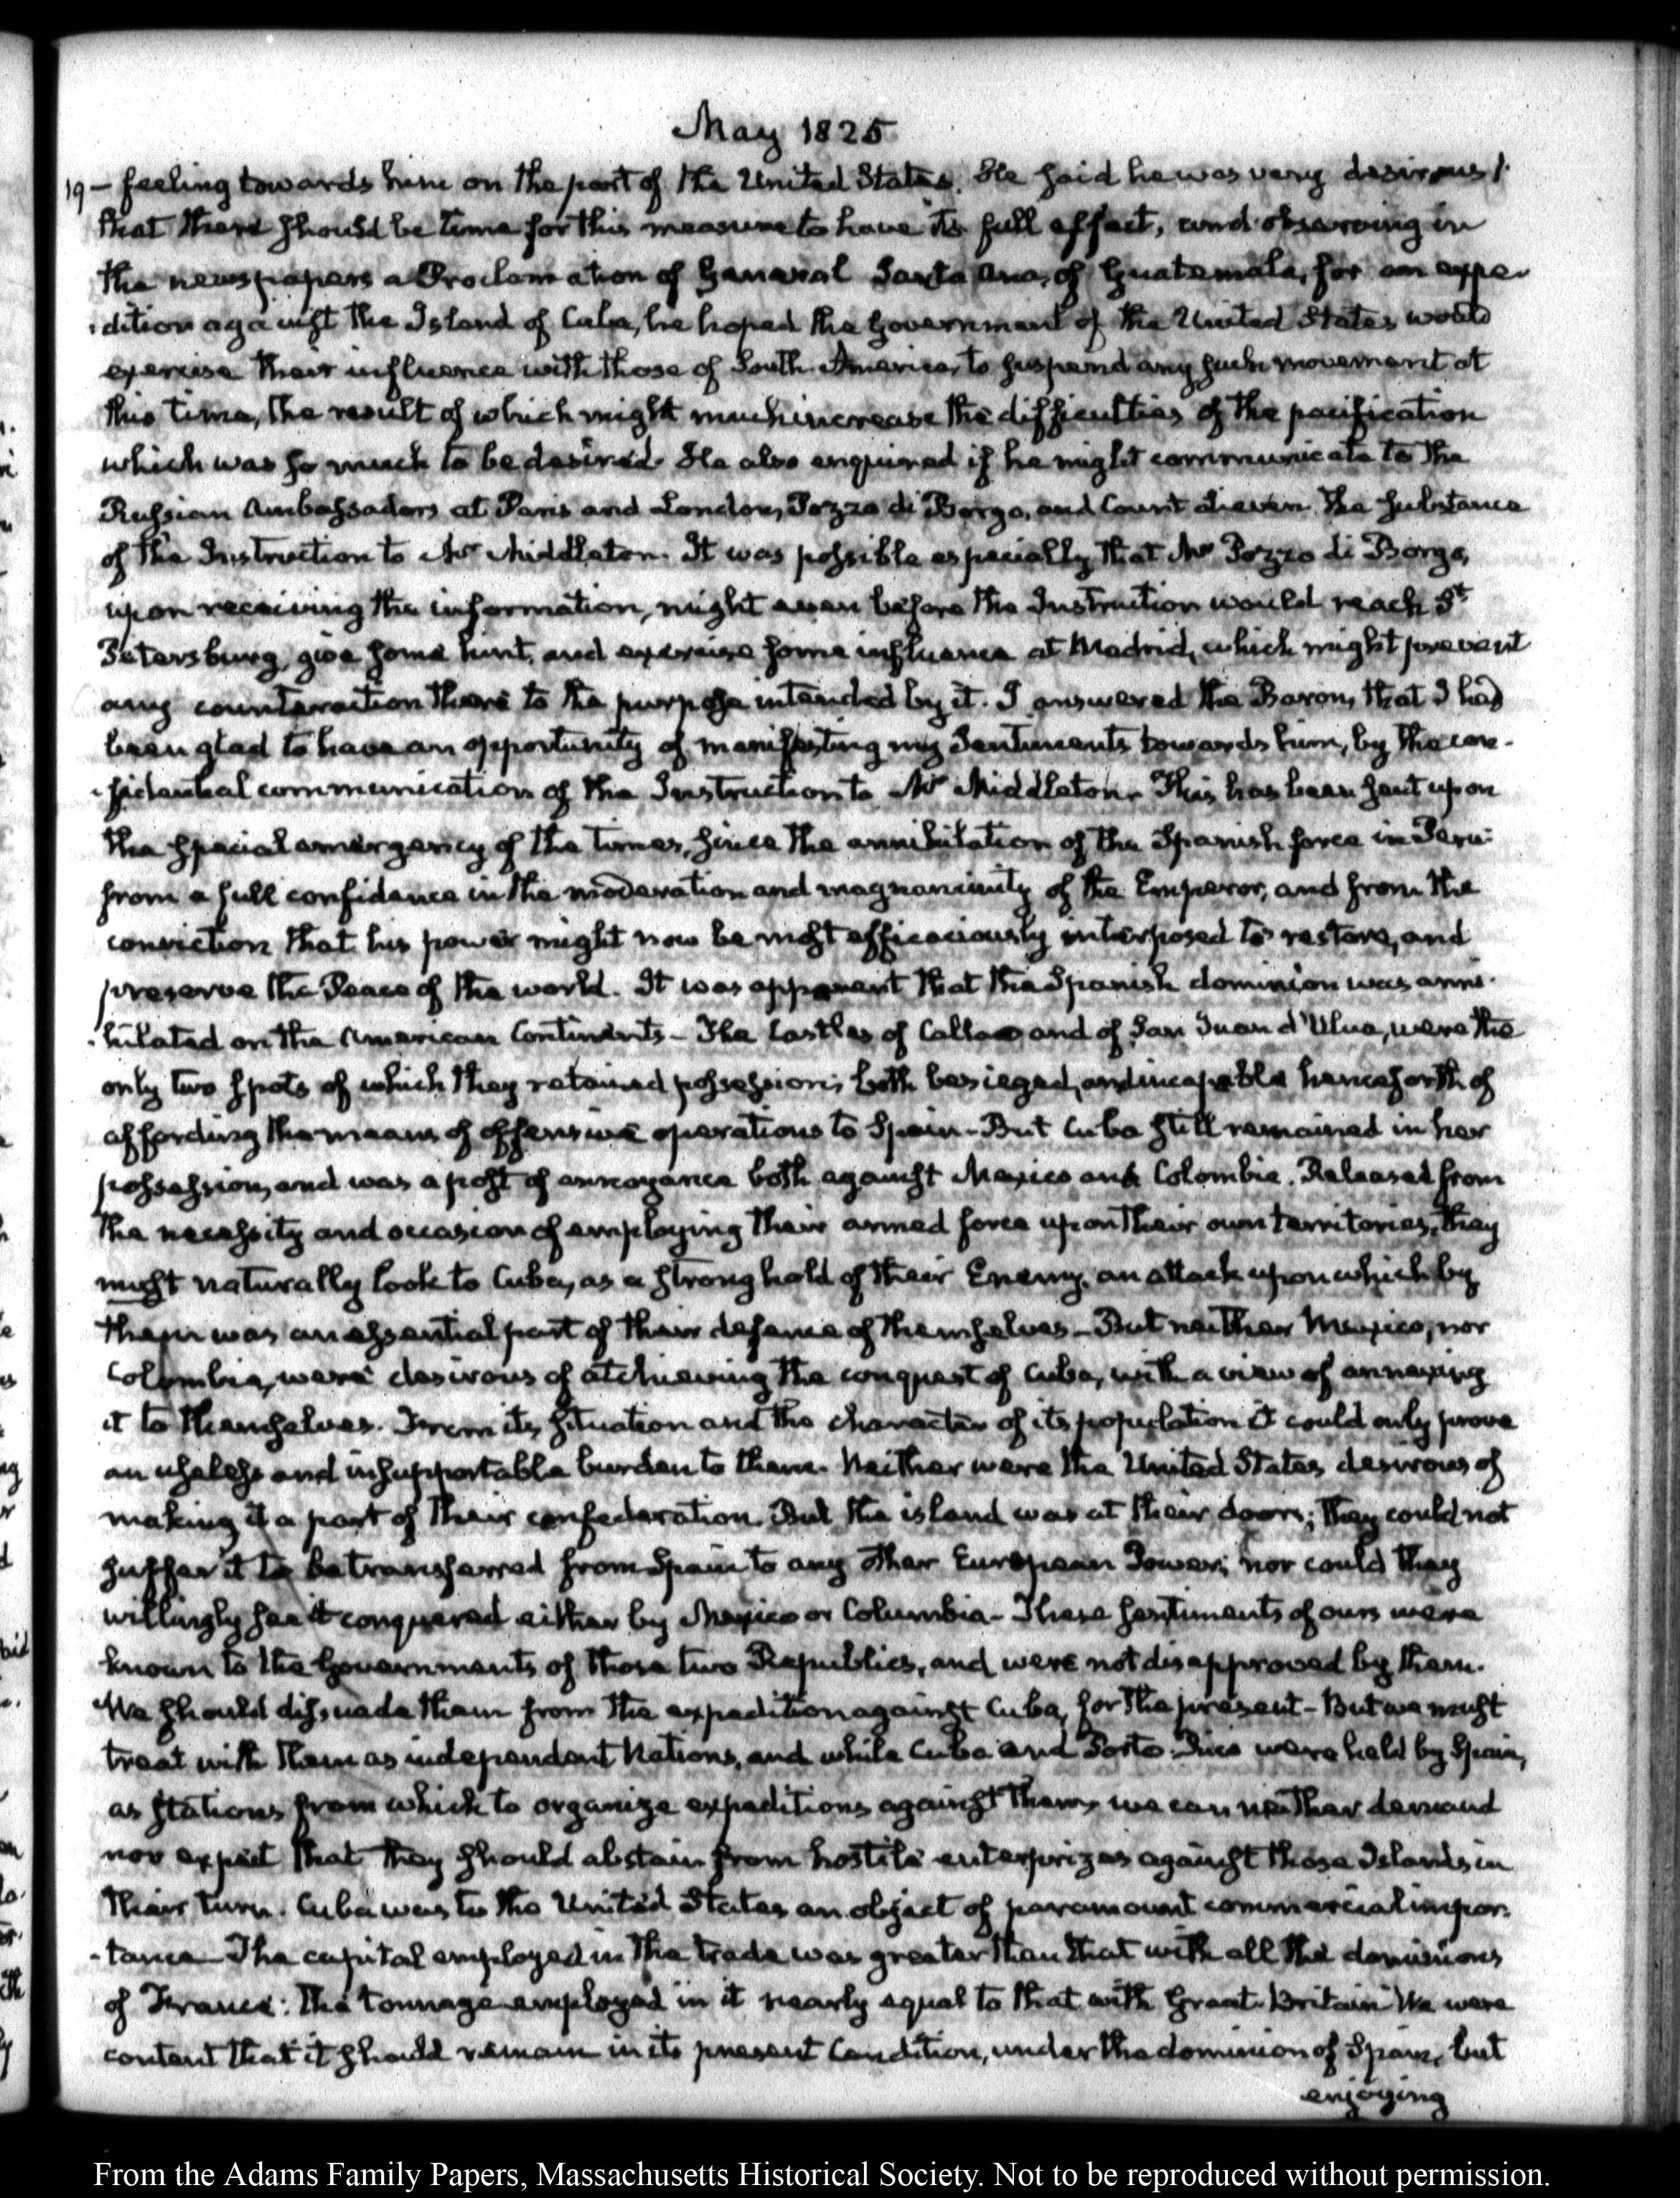 May 1825
19 – feeling towards him on the part of the United States. He said he was very desirous
that there should be time for this measure to have its full effect, and observing in
the newspapers a Proclamation of General Santa Ana, of Guatemala, for an expe-
-dition against the Island of Cuba, he hoped the Government of the United States would
exercise their influence with those of South America, to suspend any such movement at
this time, the result of which might much increase the difficulties of the pacification
which was so much to be desired. He also enquired if he might communicate to the
Russian Ambassadors at Paris and London, Pozzo di Borgo, and Count Lieven the substance
of the Instruction to Mr Middleton. It was possible especially that Mr Pozzo di Borgo,
upon receiving the information, might even before the Instruction would reach St
Petersburg, give some hint, and exercise some influence at Madrid, which might prevent
any counteraction there to the purpose intended by it. I answered the Baron, that I had
been glad to have an opportunity of manifesting my Sentiments towards him, by the con-
-fidential communication of the Instruction to Mr Middleton. This has been sent upon
the special emergency of the times, since the annihilation of the Spanish force in Peru:
from a full confidence in the moderation and magnanimity of the Emperor, and from the
conviction that his power might now be most efficaciously interposed to restore, and
preserve the Peace of the world. It was apparent that the Spanish dominion was anni-
-hilated on the American Continents – The Castles of Callao and of San Juan d'Ulua, were the
only two spots of which they retained possession; both besieged, and incapable henceforth of
affording the means of offensive operations to Spain – But Cuba still remained in her
possession, and was a post of annoyance both against Mexico and Colombia. Released from
the necessity and occasion of employing their armed force upon their own territories, they
must naturally look to Cuba, as a strong hold of their Enemy, an attack upon which by
them was an essential part of their defence of themselves – But neither Mexico, nor
Colombia, were desirous of atchieving the conquest of Cuba, with a view of annexing
it to themselves. From its situation and the character of its population it could only prove
an useless and insupportable burden to them. Neither were the United States desirous of
making it a part of their confederation. But the island was at their doors; they could not
suffer it to be transferred from Spain to any other European Power; nor could they
willingly see it conquered either by Mexico or Columbia – These sentiments of ours were
known to the Governments of those two Republics, and were not disapproved by them.
We should dissuade them from the expedition against Cuba, for the present – But we must
treat with them as independent Nations, and while Cuba and Porto-Rico were held by Spain,
as stations from which to organize expeditions against them, we can neither demand
nor expect that they should abstain from hostile enterprizes against those Islands in
their turn. Cuba was to the United States an object of paramount commercial impor-
-tance – The capital employed in the trade was greater than that with all the dominions
of France: The tonnage employed in it nearly equal to that with Great-Britain We were
content that it should remain in its present Condition, under the dominion of Spain, but
enjoying
From the Adams Family Papers, Massachusetts Historical Society. Not to be reproduced without permission.